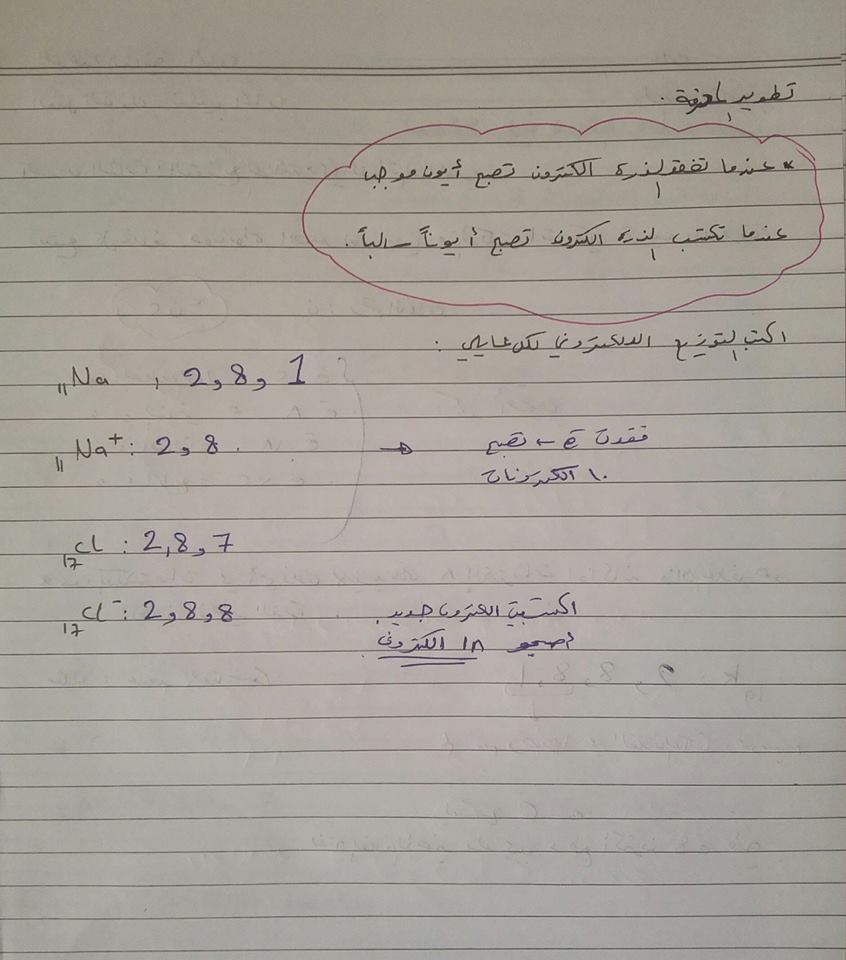 تطوير المعرفة .
* عندما تفقد الذرة الكترون تصبح أيون موجب
عندما تكتسب الذرة الكترون تصبح أيوناً سالباً .
اكتب التوزيع الالكتروني لكل مما يلي :
₁₁Na : 2, 8, 1
₁₁Na⁺ : 2, 8 . → فقدت e⁻ ← تصبح
١٠ الكترونات
₁₇Cl : 2, 8, 7
₁₇Cl⁻ : 2, 8, 8 اكتسبت الكترون جديد
أصبحو ١٨ الكترون